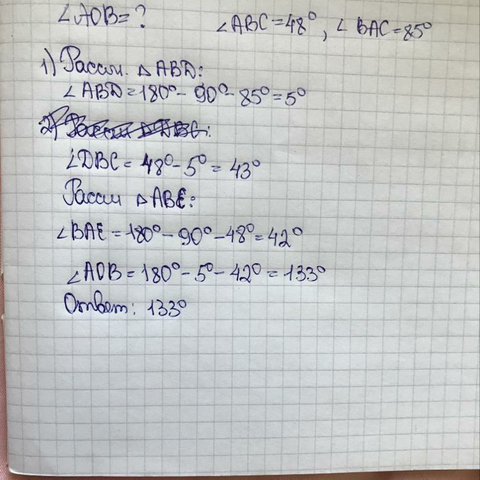 ∠AOB = ? ∠ABC = 48°, ∠BAC = 85°
1) Рассм. △ABD:
∠ABD = 180° - 90° - 85° = 5°
2)
∠DBC = 48° - 5° = 43°
Рассм △ABE:
∠BAE = 180° - 90° - 48° = 42°
∠AOB = 180° - 5° - 42° = 133°
Ответ: 133°